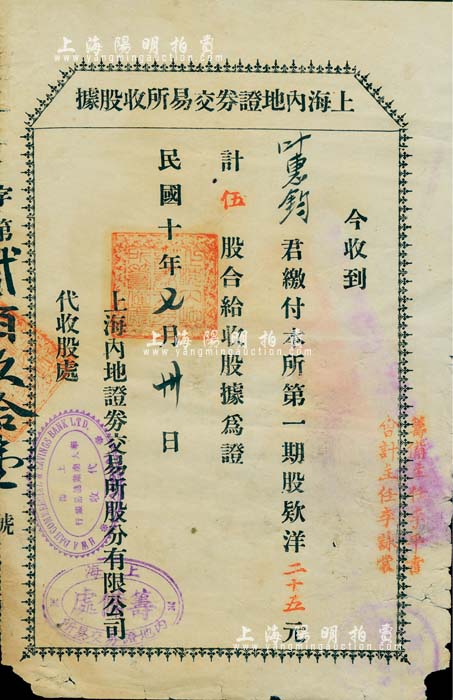 上海陽明拍賣
www.yangmingauction.com
上海內地證券交易所收股據
今收到
叶惠鈞 君繳付本所第一期股欵洋二十五元
計伍股合給收股據爲證
民國十年又月卅日
上海內地證券交易所股分有限公司
代收股處
字第貳百
號
會計主任李詠裳
代收
上海
籌處
內地證券交易所
上海陽明拍賣
www.yangmingauction.com
上海陽明拍賣
www.yangmingauction.com